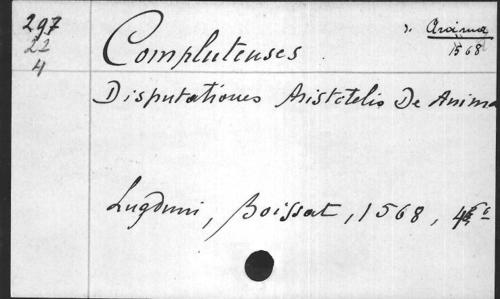 297
22
4
v. Anima
1568
Complutenses.
Disputationes Aristotelis De Anima
Lugduni, Boissat, 1568, 4º